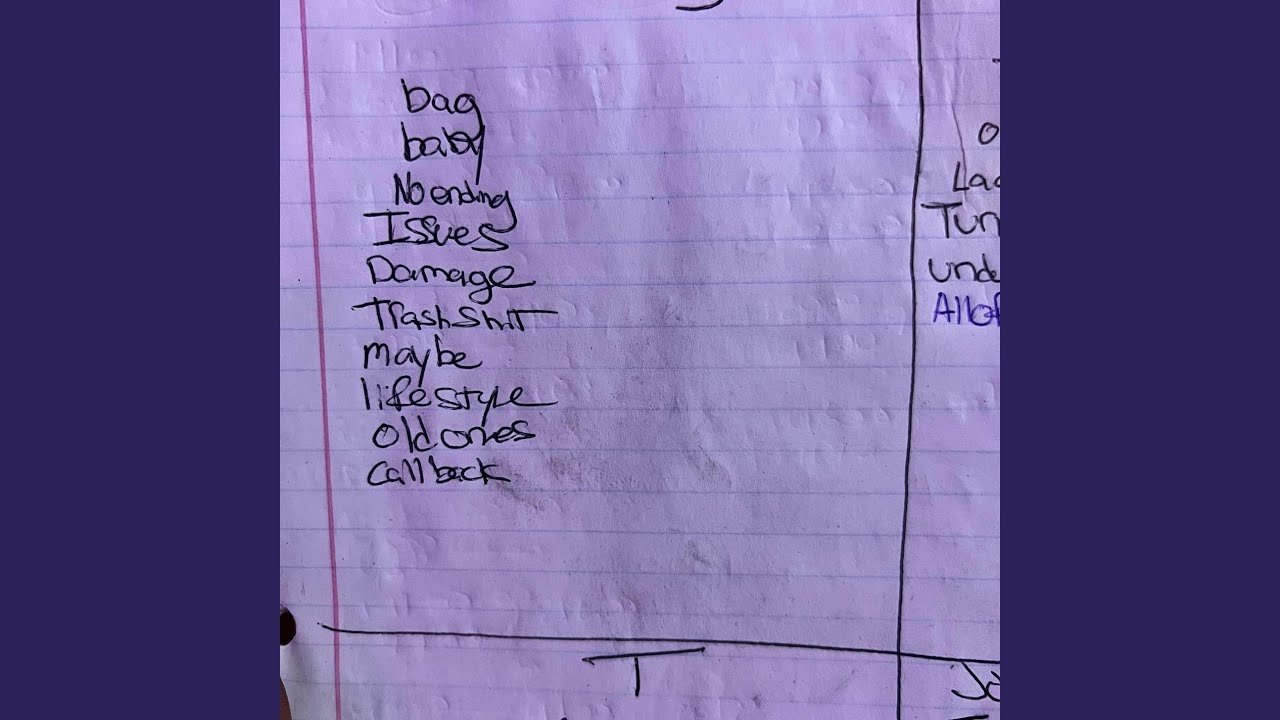 bag
baby
No ending
Issues
Damage
Trash Shit
maybe
lifestyle
old ones
Call back
T